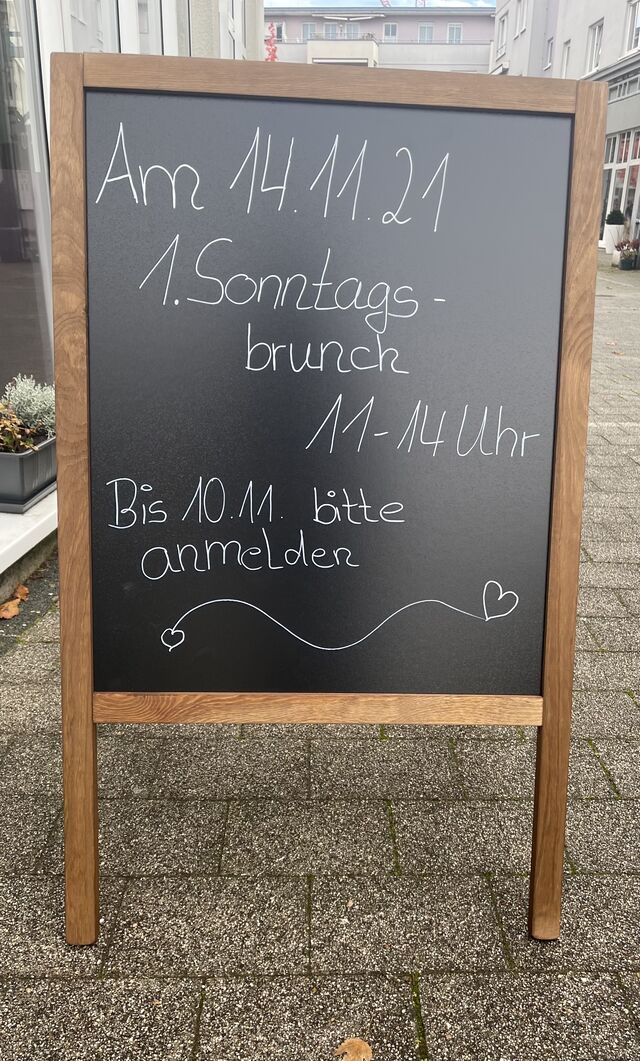 Am 14.11.21
1. Sonntags-
brunch
11-14 Uhr
Bis 10.11. bitte
anmelden